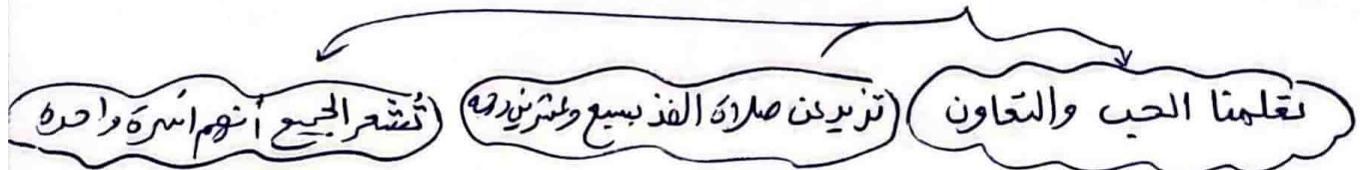 تعلمنا الحب والتعاون
تزيد عن صلاة الفذ بسبع وعشرين درجة
تُشعر الجميع أنهم أسرة واحدة